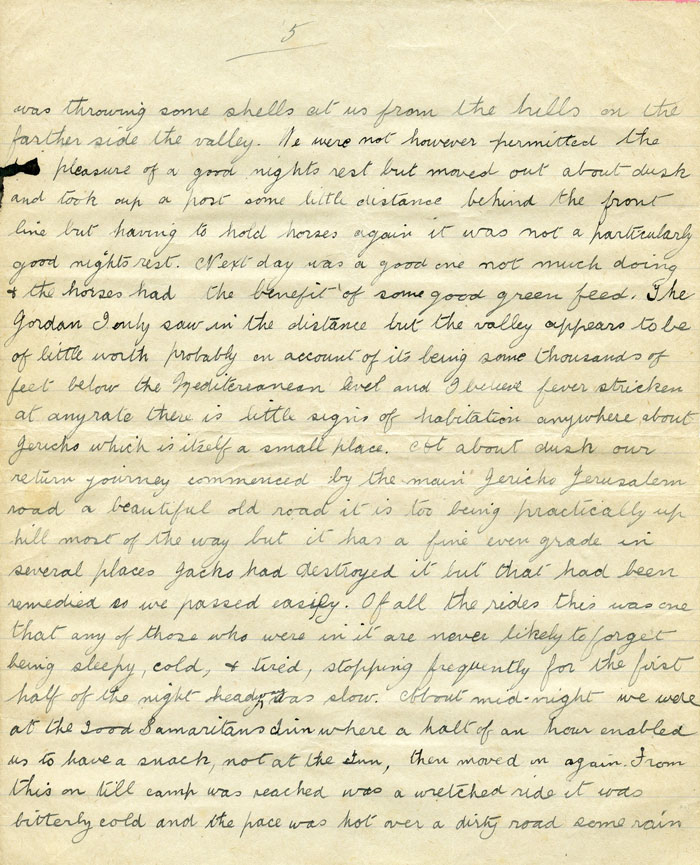 5
was throwing some shells at us from the hills on the
farther side the valley. We were not however permitted the
pleasure of a good nights rest but moved out about dusk
and took up a post some little distance behind the front
line but having to hold horses again it was not a particularly
good nights rest. Next day was a good one not much doing
& the horses had the benefit of some good green feed. The
Jordan I only saw in the distance but the valley appears to be
of little worth probably on account of its being some thousands of
feet below the Mediterranean level and I believe fever stricken
at anyrate there is little signs of habitation anywhere about
Jericho which is itself a small place. At about dusk our
return journey commenced by the "main" Jericho Jerusalem
road a beautiful old road it is too being practically up
hill most of the way but it has a fine even grade in
several places Jacko had destroyed it but that had been
remedied so we passed easily. Of all the rides this was one
that any of those who were in it are never likely to forget
being sleepy, cold, & tired, stopping frequently for the first
half of the night headway was slow. About mid-night we were
at the Good Samaritans Inn where a halt of an hour enabled
us to have a snack, not at the Inn, then moved on again. From
this on till camp was reached was a wretched ride it was
bitterly cold and the pace was hot over a dirty road some rain